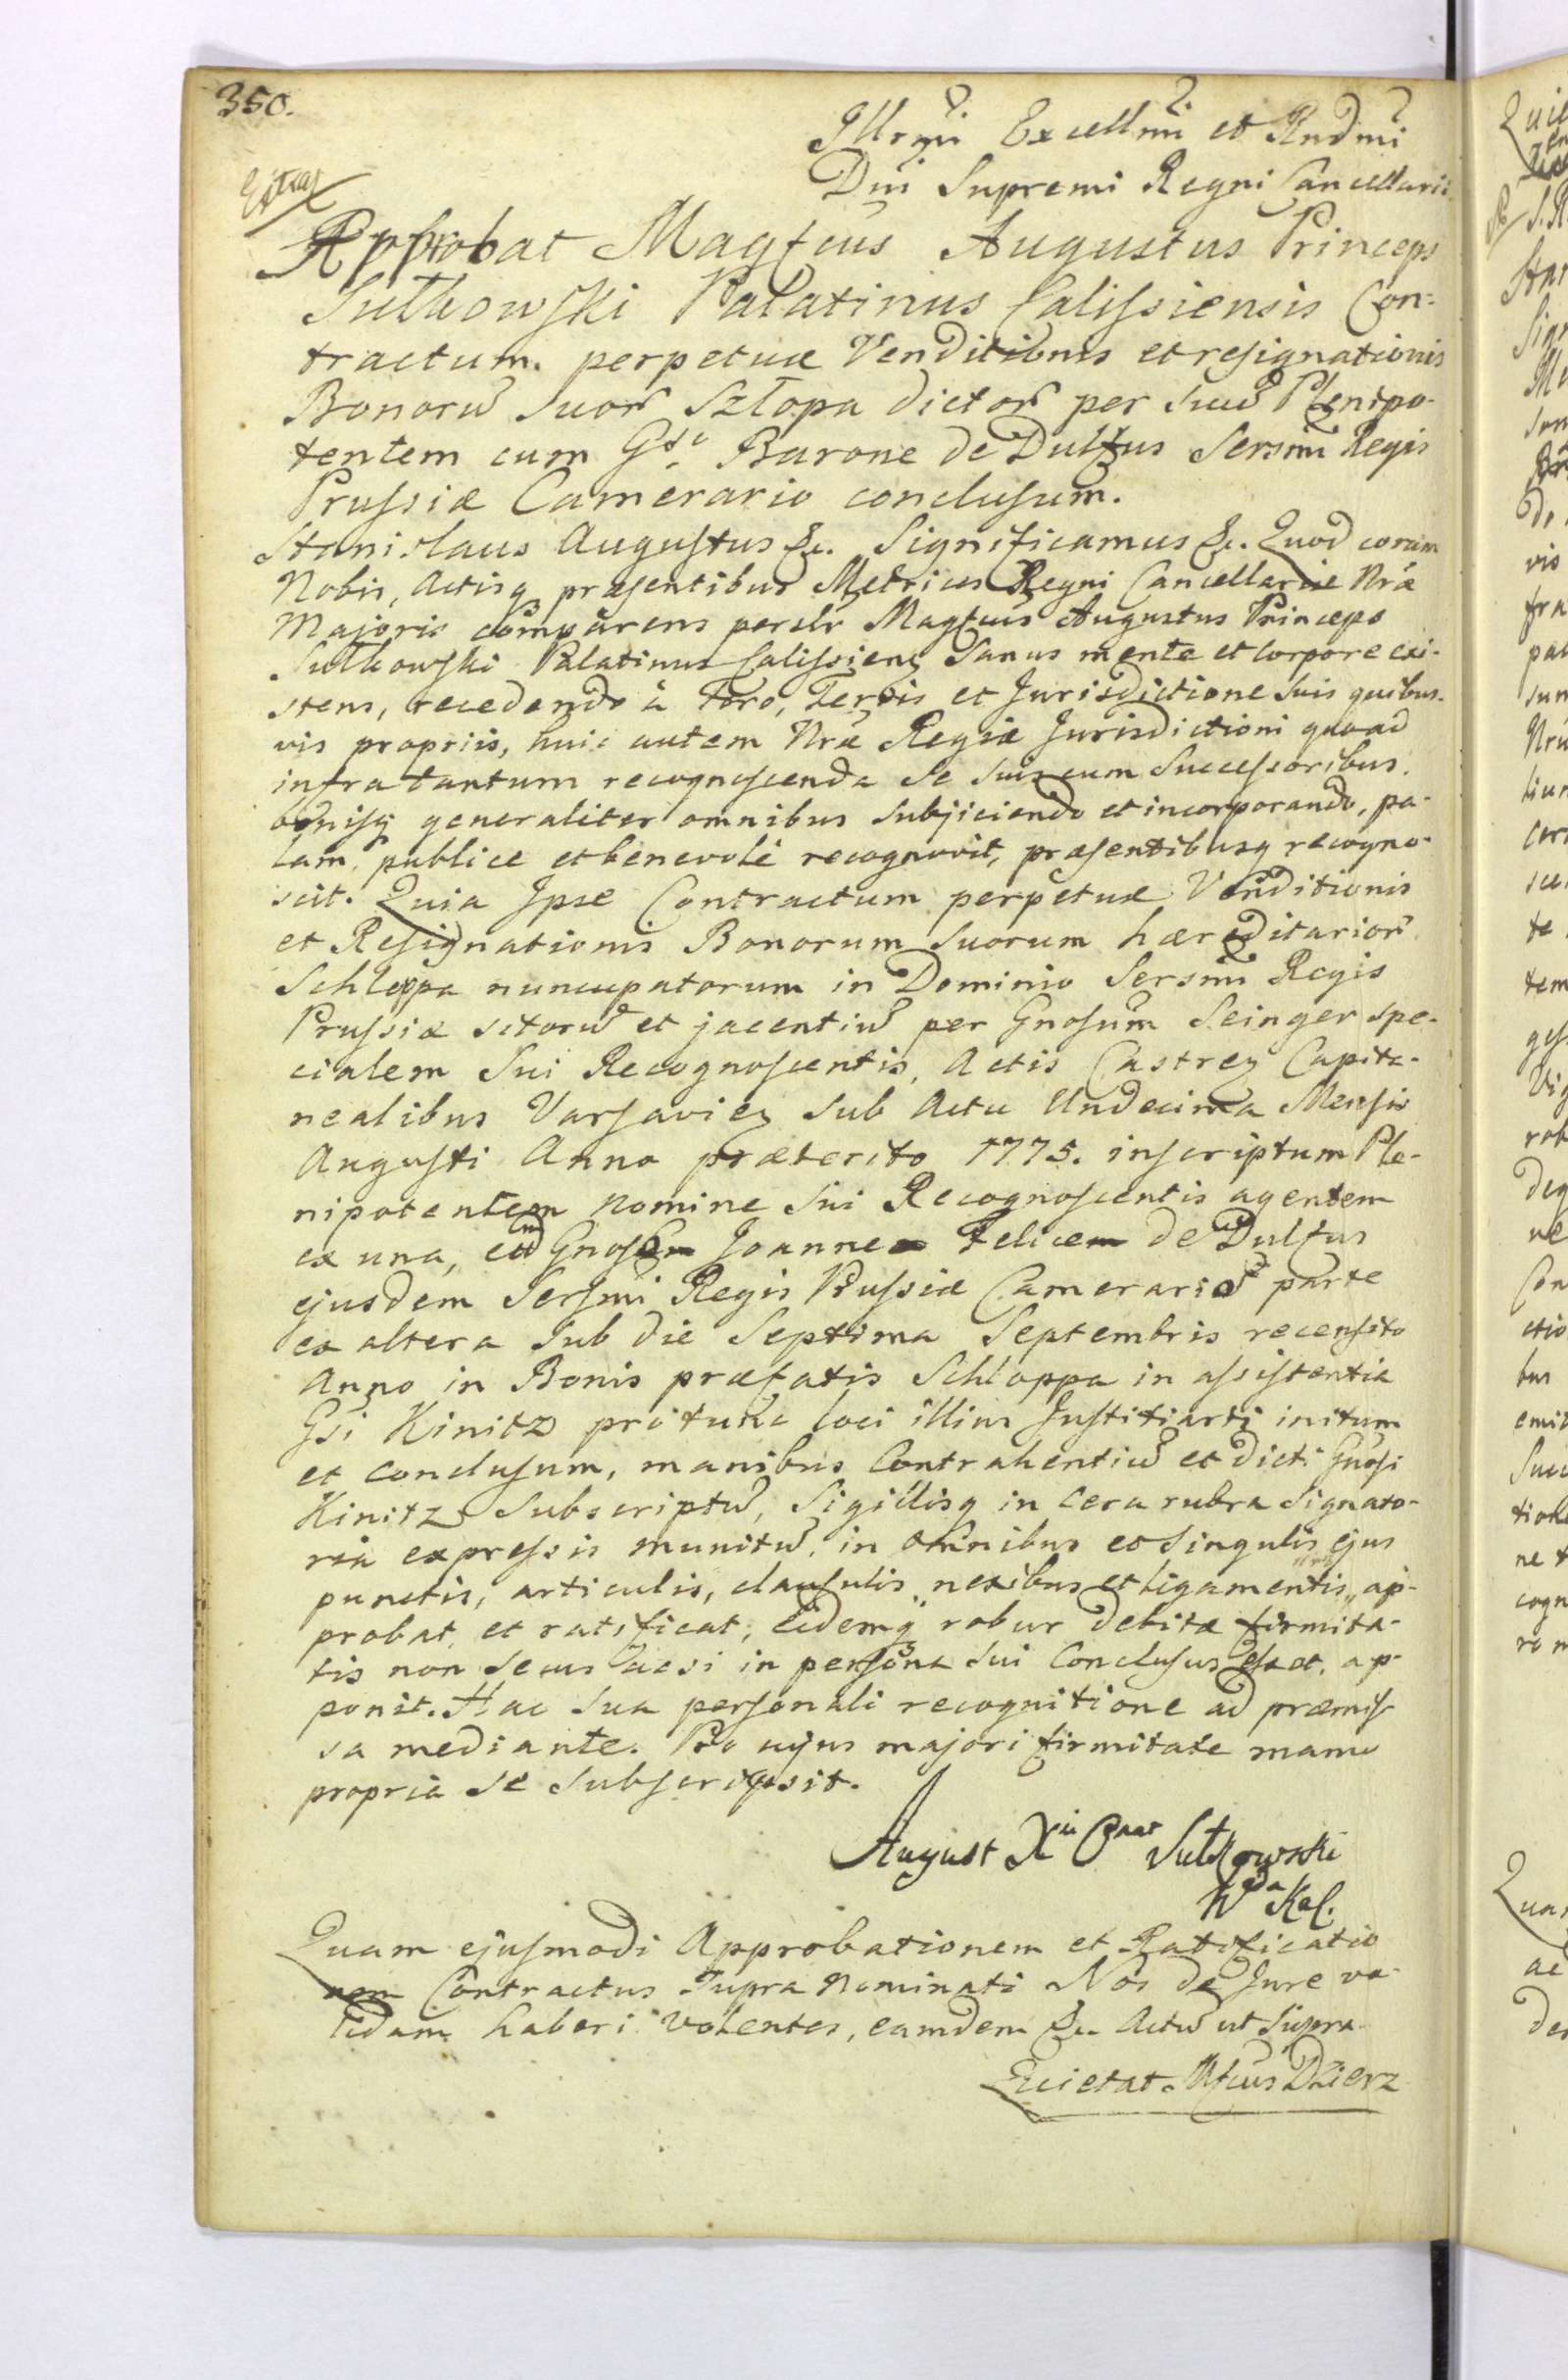 350.
Illrmi Excellmi et Rndmi
Dni Supremi Regni Cancellarii
Extrad
Approbat Magfcus Augustus Princeps
Sułkowski Palatinus Calissiensis Con-
tractum perpetuæ Venditionis et resignationis
Bonorũ suor̃ Szłopa dictor̃ per suũ Plenipo-
tentem cum Gso Barone de Dulfus Sersmi Regis
Prussiæ Camerario conclusum.
Stanislaus Augustus &c. Significamus &c. Quod coram
Nobis, Actisq præsentibus Metrices Regni Cancellariæ Nræ
Majoris comparens personlr Magfcus Augustus Princeps
Sułkowski Palatinus Calissiens Sanus mente et corpore exi-
stens, recedendo à Foro, Terris et Jurisdictione suis quibus-
vis propriis, huic autem Nræ Regiæ Jurisdictioni quoad
infra tantum recognoscenda se suis cum Successoribus
bonisq generaliter omnibus subjiciendo et incorporando, pa-
lam, publice et benevolè recognovit, præsentibusq recogno-
scit. Quia Ipse Contractum perpetuæ Venditionis
et Resignationis Bonorum suorum hæreditarior̃
Schloppa nuncupatorum in Dominio Sersmi Regis
Prussiæ sitorũ et jacentiũ per Gnosum Seinger spe-
cialem sui Recognoscentis, Actis Castren Capita-
nealibus Varsavien sub Actu Undecima Mensis
Augusti Anno præterito 1775. inscriptum Ple-
nipotentem nomine sui Recognoscentis agentem
ex una, cum Gnoso Joanne Felice de Dulfus
ejusdem Sersmi Regis Prussiæ Camerario parte
ex altera sub die Septima Septembris recensito
Anno in Bonis præfatis Schloppa in assistentia
Gsi Kinitz protunc loci illius Justitiarij initum
et conclusum, manibus Contrahentiũ et dicti Gnosi
Kinitz subscriptũ, Sigillisq in cera rubra signato-
ria expressis munitũ, in omnibus et singulis ejus
punctis, articulis, clausulis, nexibus et ligamentis, ap-
probat, et ratificat, eidemq robur debitæ firmita-
tis non secus acsi in persona sui conclusus esset, ap-
ponit. Hac sua personali recognitione ad præmis-
sa mediante. Pro cujus majori firmitate manu
propria se subscripsit.
August Sułkowski
Wda Kal.
Quam ejusmodi Approbationem et Ratificatio
nem Contractus supra nominati Nos de Jure va-
lidam haberi volentes, eamdem &c. Actũ ut supra.
Dzierz